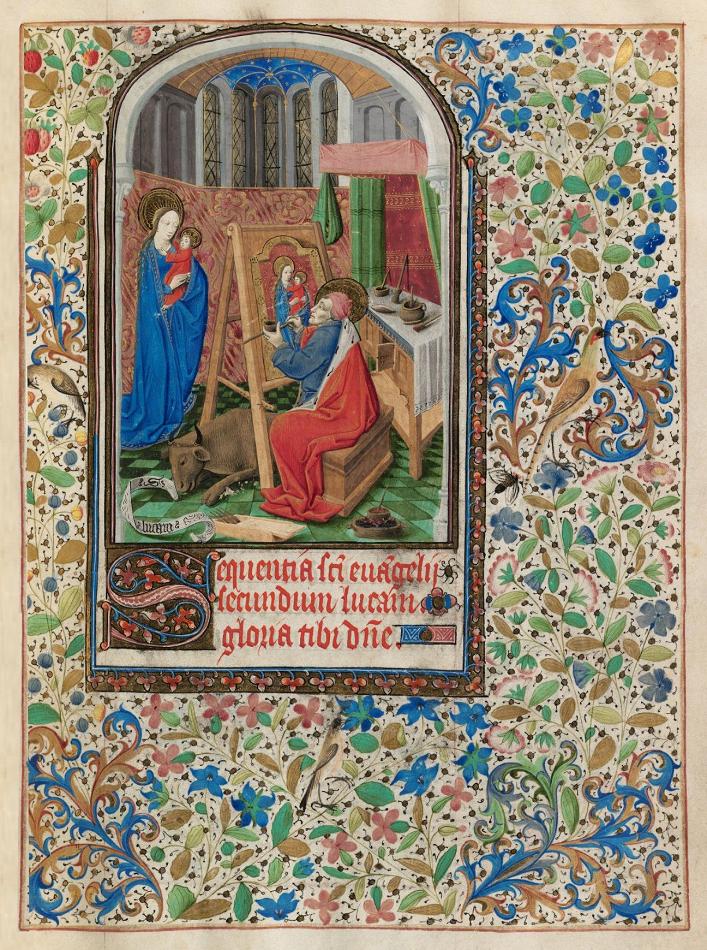 lucam
Sequentia sci euāgelij
secundum lucam
gloria tibi dne.